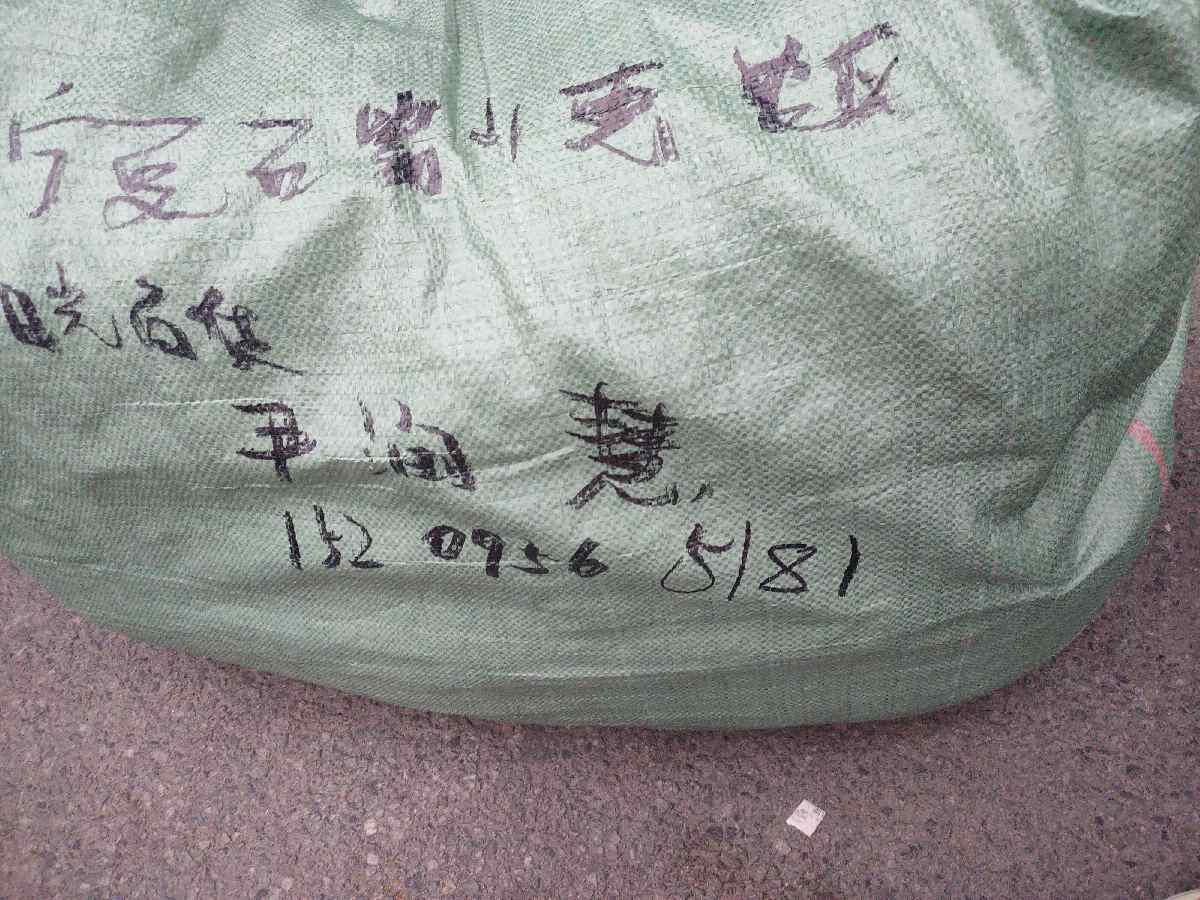 宁夏石嘴山惠农区
晓百佳
尹润慧
152 0956 5181